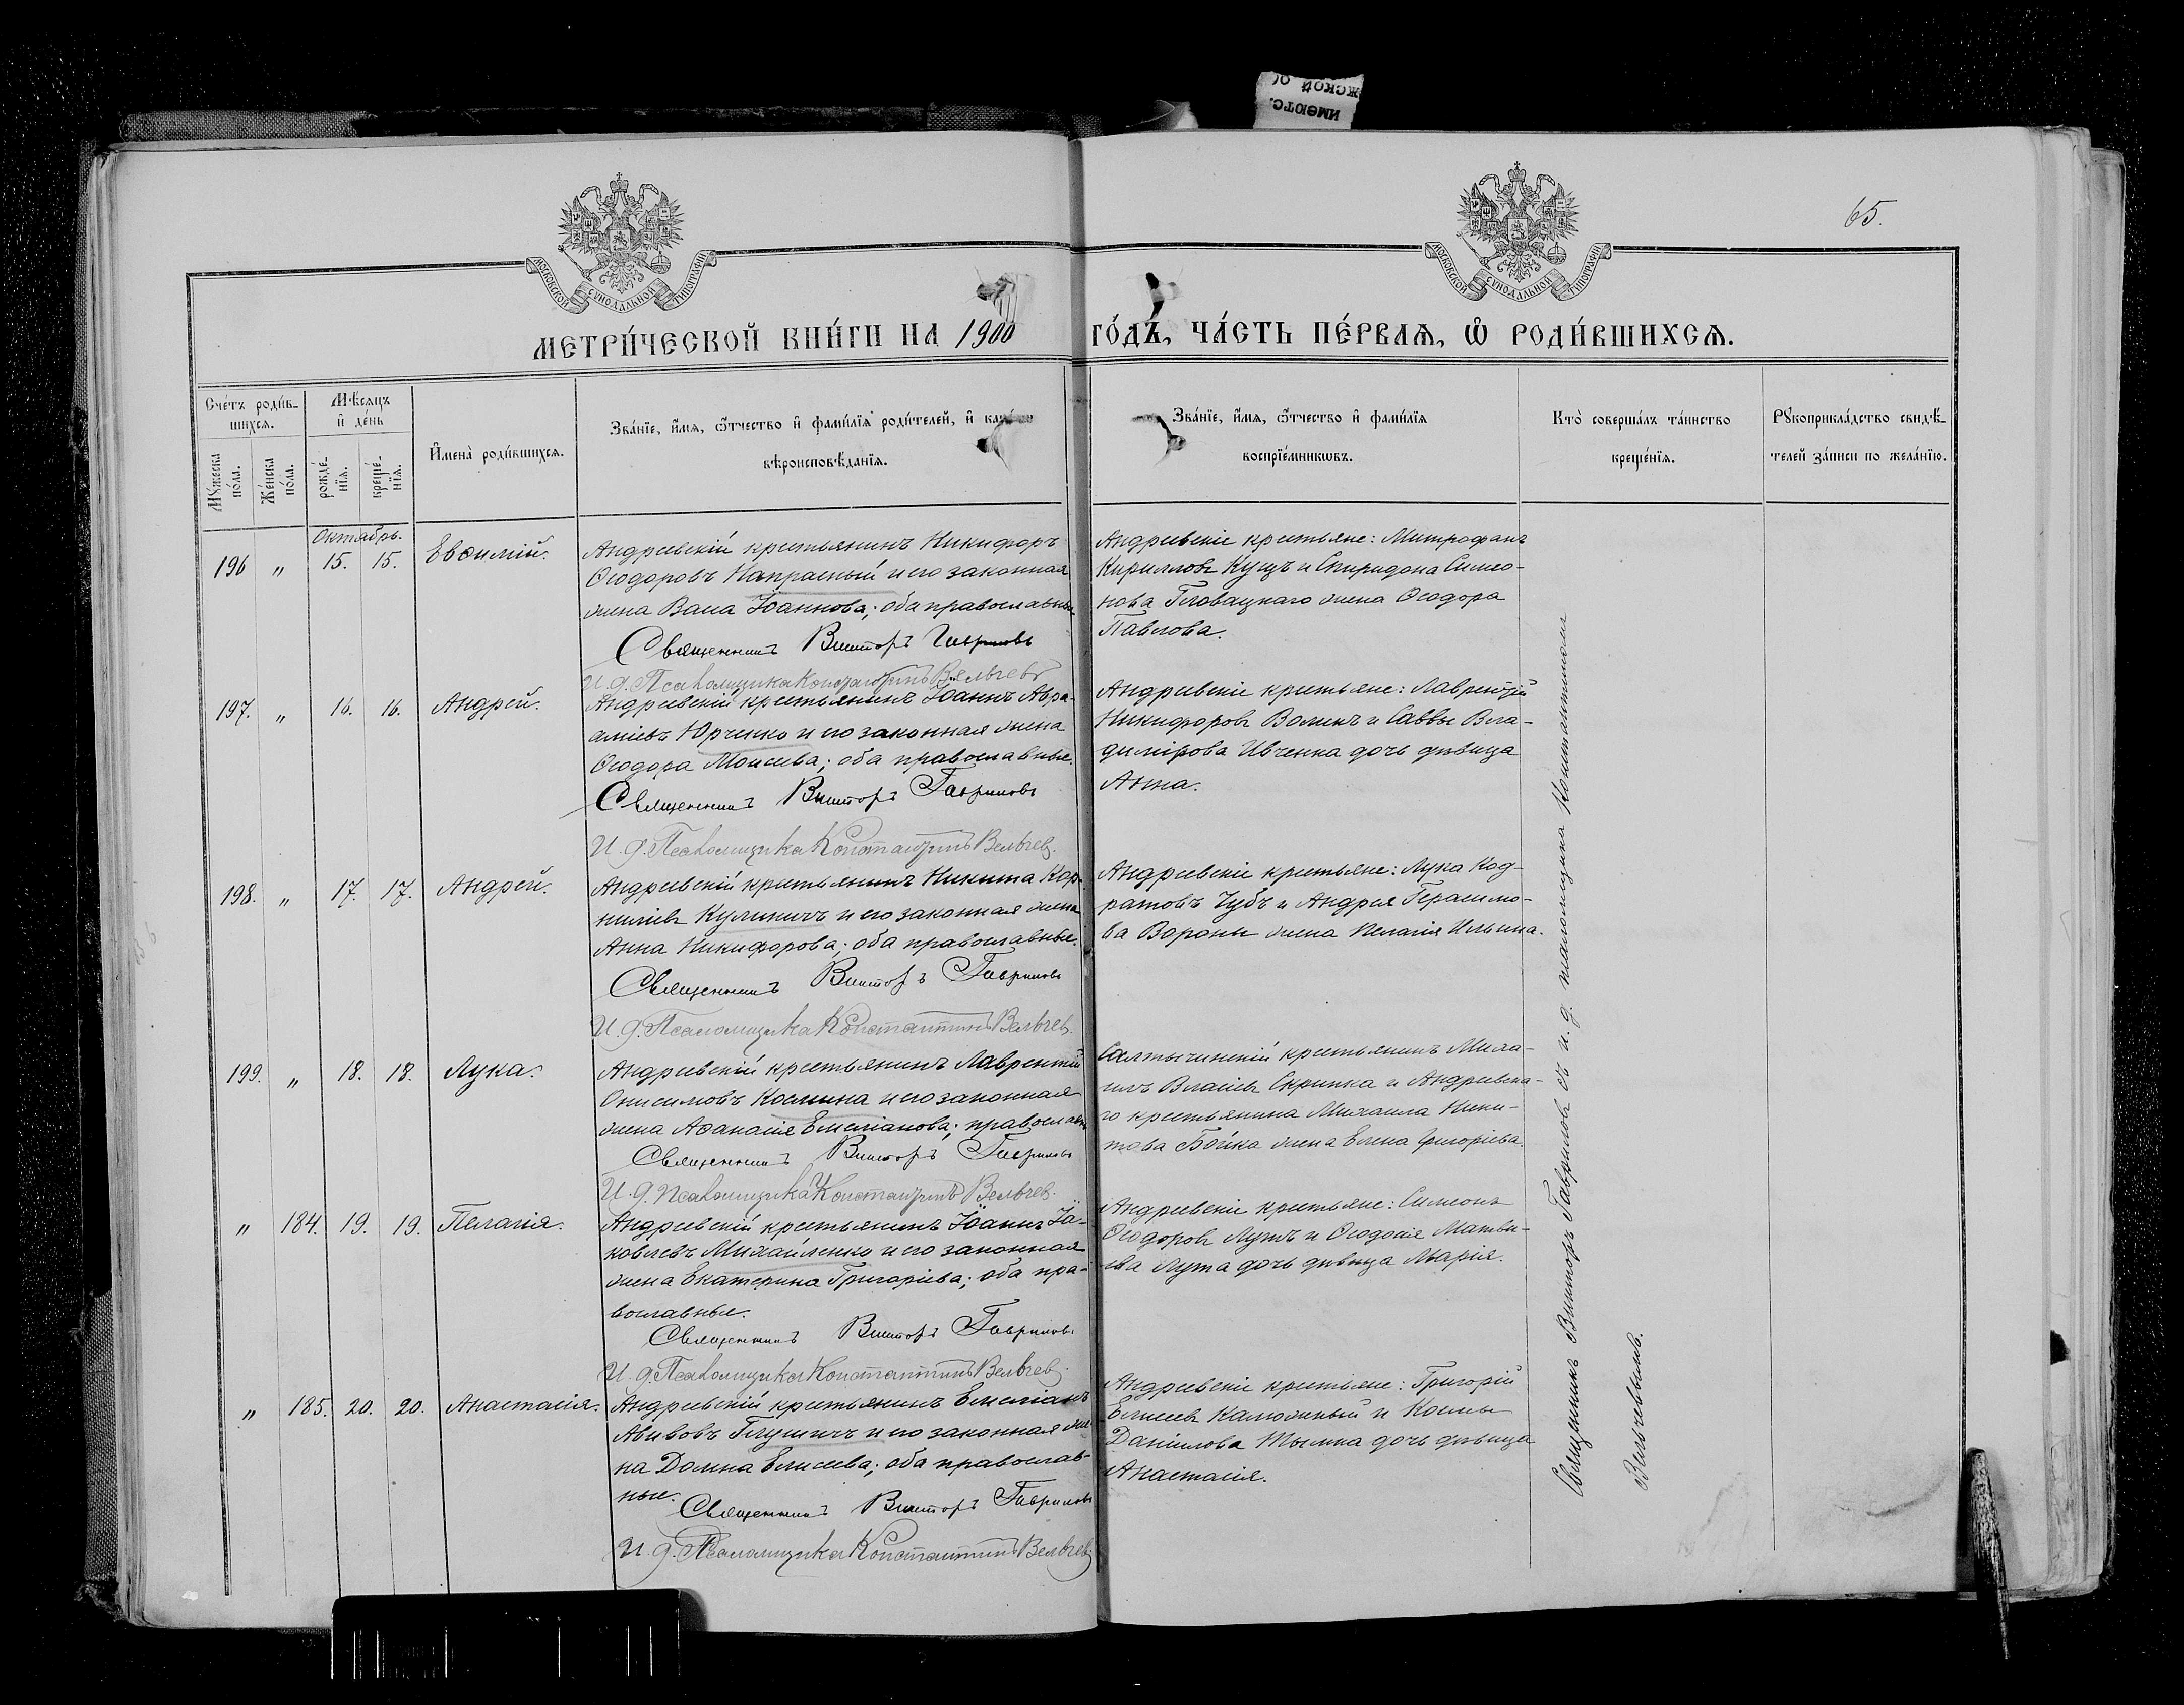 ИМЕЮТС.
ЖСКОЙ О
65.
МОСКОВСКОЙ СѴНОДАЛЬНОЙ ТИПОГРАФІИ
МОСКОВСКОЙ СѴНОДАЛЬНОЙ ТИПОГРАФІИ
МЕТРИ́ЧЕСКОЙ КНИ́ГИ НА 1900 ГО́ДЪ, ЧА́СТЬ ПЕ́РВАЯ, Ѡ҆ РОДИ́ВШИХСЯ.
Сче́тъ роди́в-
шихся.
Мꙋ́жеска
по́ла.
Же́нска
по́ла.
Мѣ́сяцъ
и҆ де́нь
рожде́-
нїя.
креще́-
нїя.
И҆мена̀ роди́вшихся.
Зва́нїе, и҆́мя, ѻ҆́тчество и҆ фами́лїя роди́телей, и҆
вѣроисповѣ́данїя.
Зва́нїе, и҆́мя, ѻ҆́тчество и҆ фами́лїя
воспрїе́мникѡвъ.
Кто̀ соверша́лъ та́инство
креще́нїя.
Рꙋкоприкла́дство свидѣ́-
телей за́писи по жела́нїю.
Октябрь.
196 „ 15. 15. Евѳимій.
Андреевскій крестьянинъ Никифоръ
Ѳеодоровъ Напрасный и его законная
жена Васса Іоаннова; оба православные
Священникъ Викторъ Гавриловъ
И. д. Псаломщика Константинъ Вельчевъ
Андреевскіе крестьяне: Митрофанъ
Кирилловъ Куцъ и Спиридона Симео-
нова Головацкаго жена Ѳеодора
Павлова.
197. „ 16. 16. Андрей.
Андреевскій крестьянинъ Іоаннъ Авра-
аміевъ Юрченко и его законная жена
Ѳеодора Моисеева; оба православные.
Священникъ Викторъ Гавриловъ
И. д. Псаломщика Константинъ Вельчевъ.
Андреевскіе крестьяне: Лаврентій
Никифоровъ Воликъ и Саввы Вла-
димірова Ивченка дочь дѣвица
Анна.
198. „ 17. 17. Андрей.
Андреевскій крестьянинъ Никита Кор-
ниліевъ Куликичъ и его законная жена
Анна Никифорова; оба православные.
Священникъ Викторъ Гавриловъ
И. д. Псаломщика Константинъ Вельчевъ.
Андреевскіе крестьяне: Лука Код-
ратовъ Чубъ и Андрея Герасимо-
ва Вороны жена Пелагія Ильина.
199. „ 18. 18. Лука.
Андреевскій крестьянинъ Лаврентій
Онисимовъ Космина и его законная
жена Аѳанасія Емеліанова; православн
Священникъ Викторъ Гавриловъ
И. д. Псаломщика Константинъ Вельчевъ.
Салтычинскій крестьянинъ Миха-
илъ Власіевъ Скрипка и Андреевска-
го крестьянина Михаила Ники-
това Бойка жена Елена Григоріева.
„ 184. 19. 19. Пелагія.
Андреевскій крестьянинъ Іоаннъ Іа-
ковлевъ Михайленко и его законная
жена Екатерина Григоріева; оба пра-
вославные.
Священникъ Викторъ Гавриловъ
И. д. Псаломщика Константинъ Вельчевъ.
Андреевскіе крестьяне: Симеонъ
Ѳеодоровъ Лутъ и Ѳеодосія Матвѣ-
ева Лута дочь дѣвица Марія.
„ 185. 20. 20. Анастасія.
Андреевскій крестьянинъ Емеліанъ
Авивовъ Глушичъ и его законная же-
на Домна Елисеева; оба православ-
ные.
Священникъ Викторъ Гавриловъ
И. д. Псаломщика Константинъ Вельчевъ
Андреевскіе крестьяне: Григорій
Елисеевъ Калюжный и Космы
Даніилова Тымка дочь дѣвица
Анастасія.
Священникъ Викторъ Гавриловъ съ и. д. псаломщика Константиномъ
Вельчевымъ.